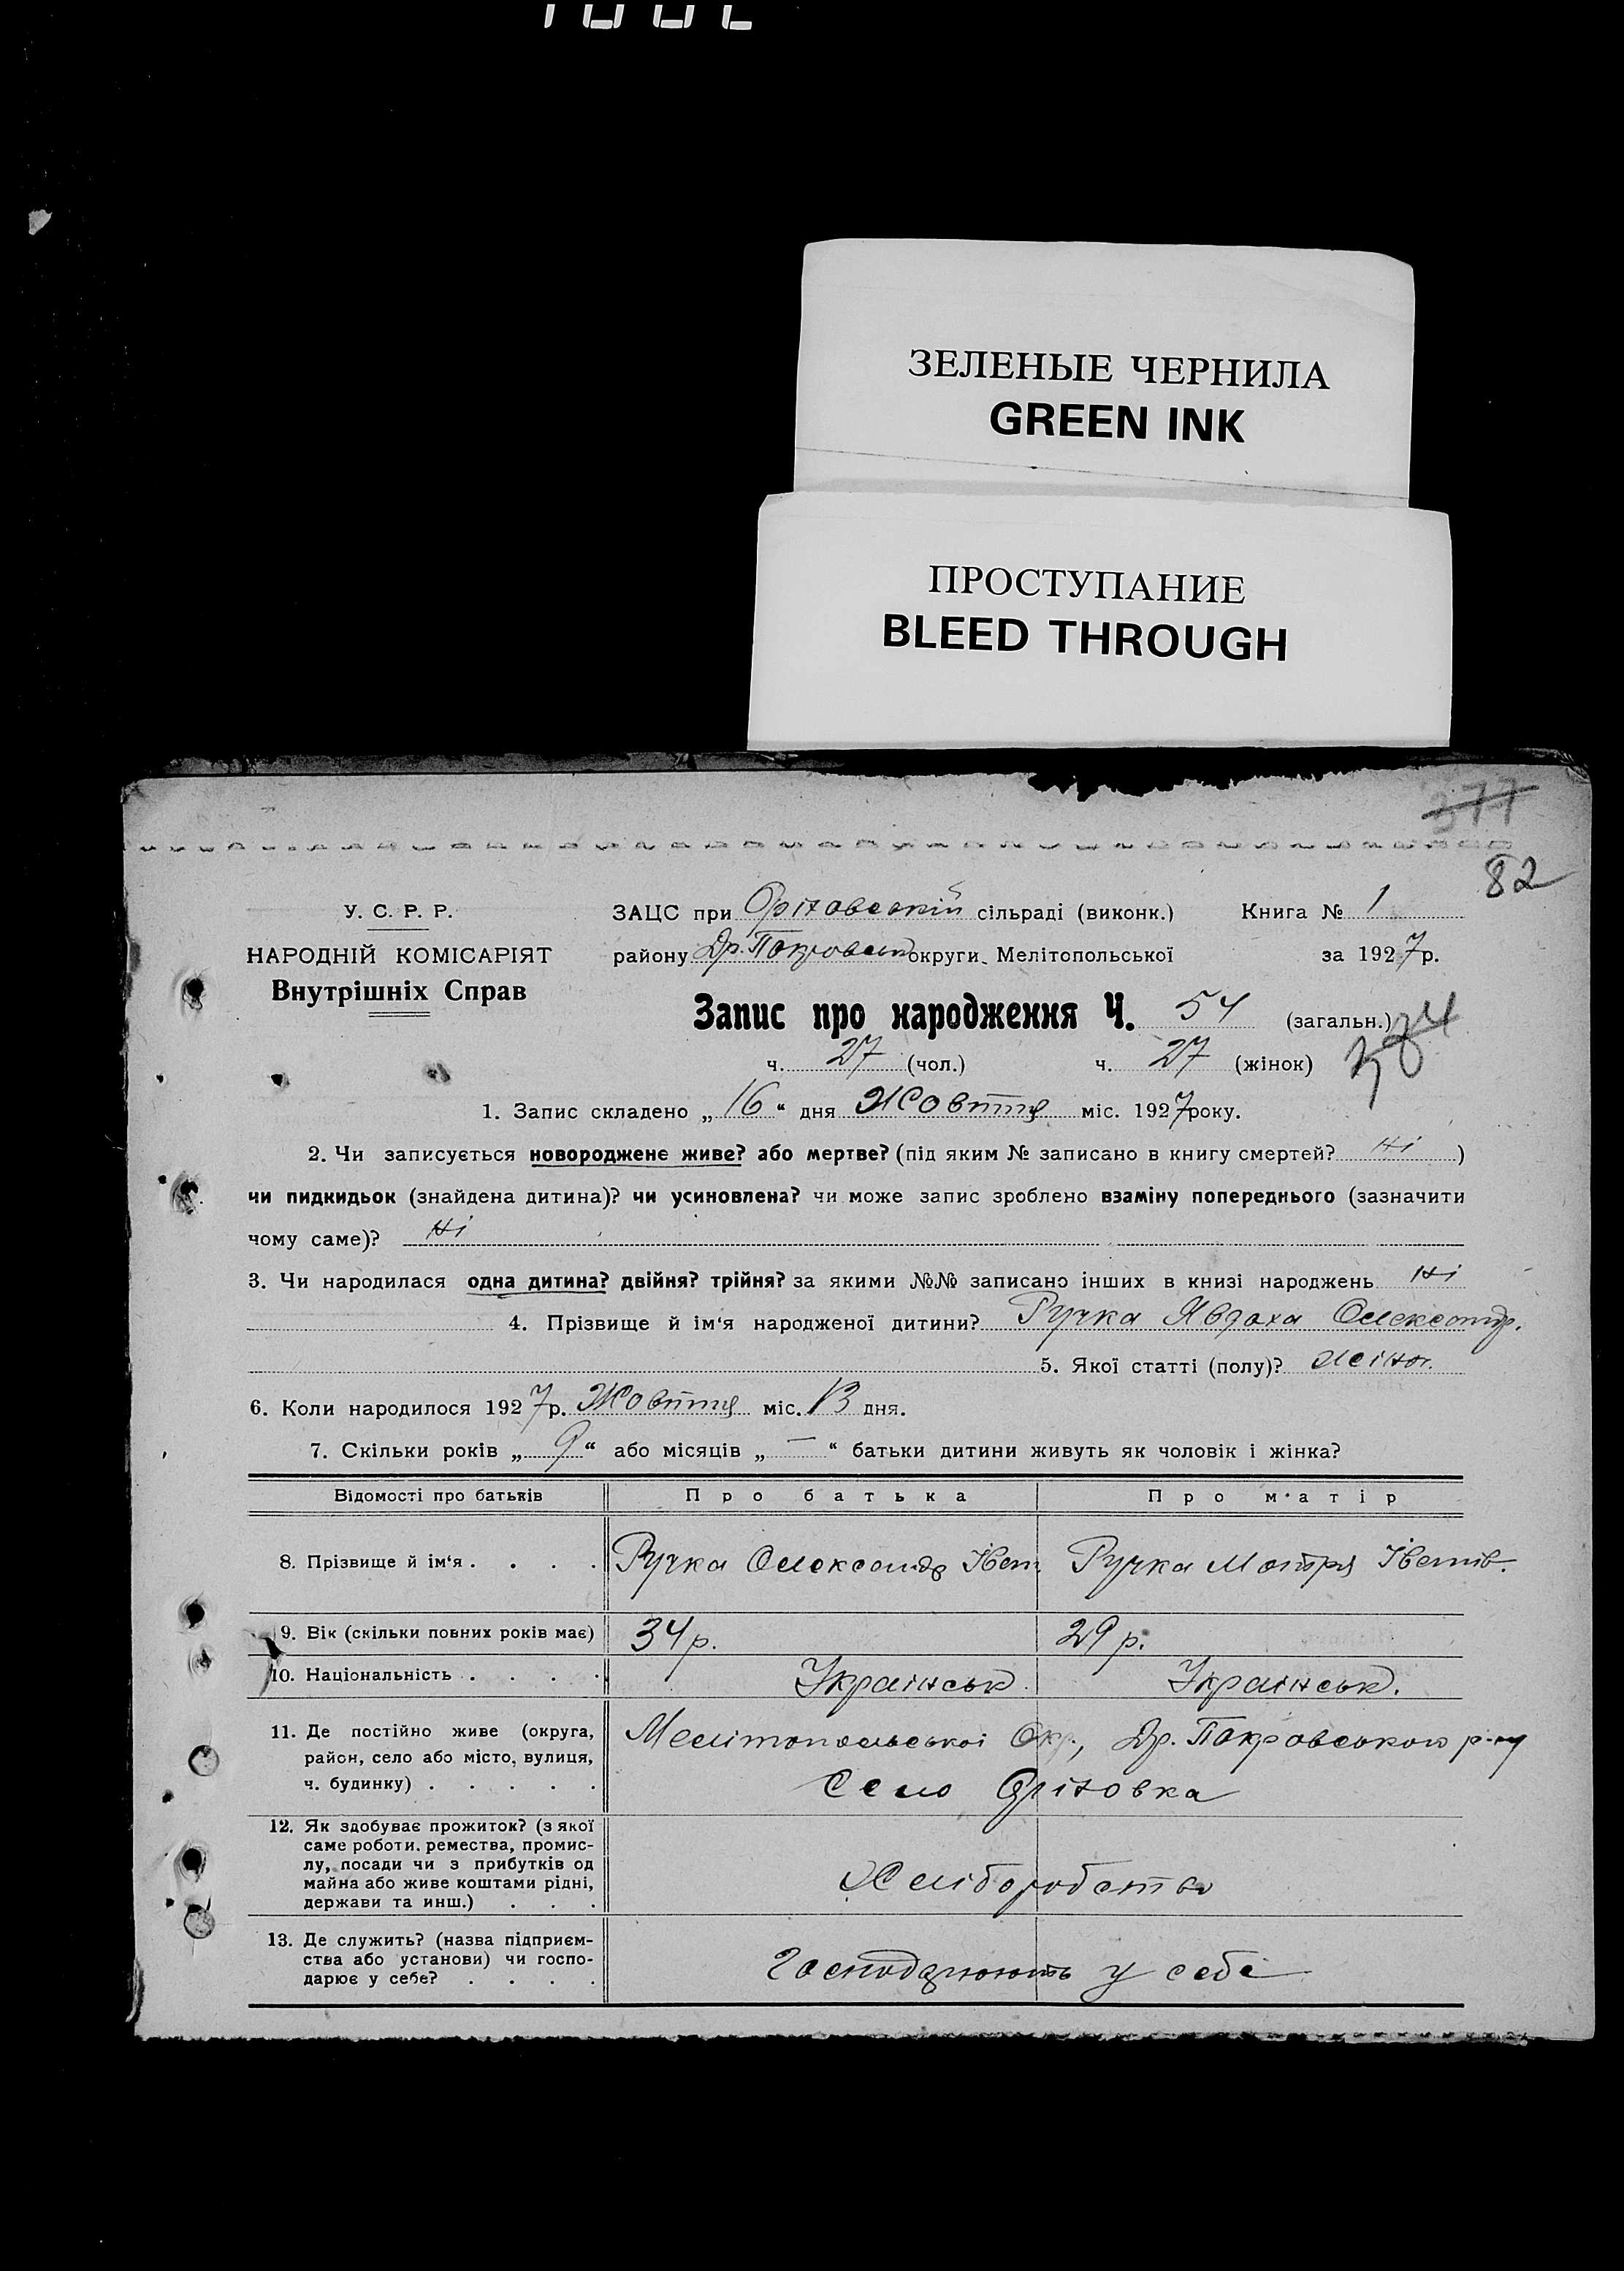 ЗЕЛЕНЫЕ ЧЕРНИЛА
GREEN INK
ПРОСТУПАНИЕ
BLEED THROUGH
377
82
У. С. Р. Р.
НАРОДНІЙ КОМІСАРІЯТ
Внутрішніх Справ
ЗАЦС при Оріховській сільраді (виконк.) Книга № 1
району Др. Покровськ округи Мелітопольської за 1927 р.
Запис про народження Ч. 54 (загальн.)
ч. 27 (чол.) ч. 27 (жінок)
1. Запис складено „16“ дня Жовтня міс. 1927 року.
2. Чи записується новороджене живе? або мертве? (під яким № записано в книгу смертей? Ні )
чи пидкидьок (знайдена дитина)? чи усиновлена? чи може запис зроблено взаміну попереднього (зазначити
чому саме)? Ні
3. Чи народилася одна дитина? двійня? трійня? за якими №№ записано інших в книзі народжень Ні
4. Прізвище й ім‘я народженої дитини? Ручка Явдоха Олександр.
5. Якої статті (полу)? жіноч.
6. Коли народилося 1927 р. Жовтня міс. 13 дня.
7. Скільки років „9“ або місяців „—“ батьки дитини живуть як чоловік і жінка?
Відомості про батьків Про батька Про матір
8. Прізвище й ім‘я . . . . Ручка Олександр Іван. Ручка Мотря Іванів.
9. Вік (скільки повних років має) 34 р. 29 р.
10. Національність . . . . Українськ. Українськ.
11. Де постійно живе (округа,
район, село або місто, вулиця,
ч. будинку) . . . . .
Мелітопольської Окр., Др. Покровського р-ну
Село Оріховка
12. Як здобуває прожиток? (з якої
саме роботи, ремества, промис-
лу, посади чи з прибутків од
майна або живе коштами рідні,
держави та инш.) . . .
Хліборобство
13. Де служить? (назва підприєм-
ства або установи) чи госпо-
дарює у себе? . . . .
Господарюють у себе